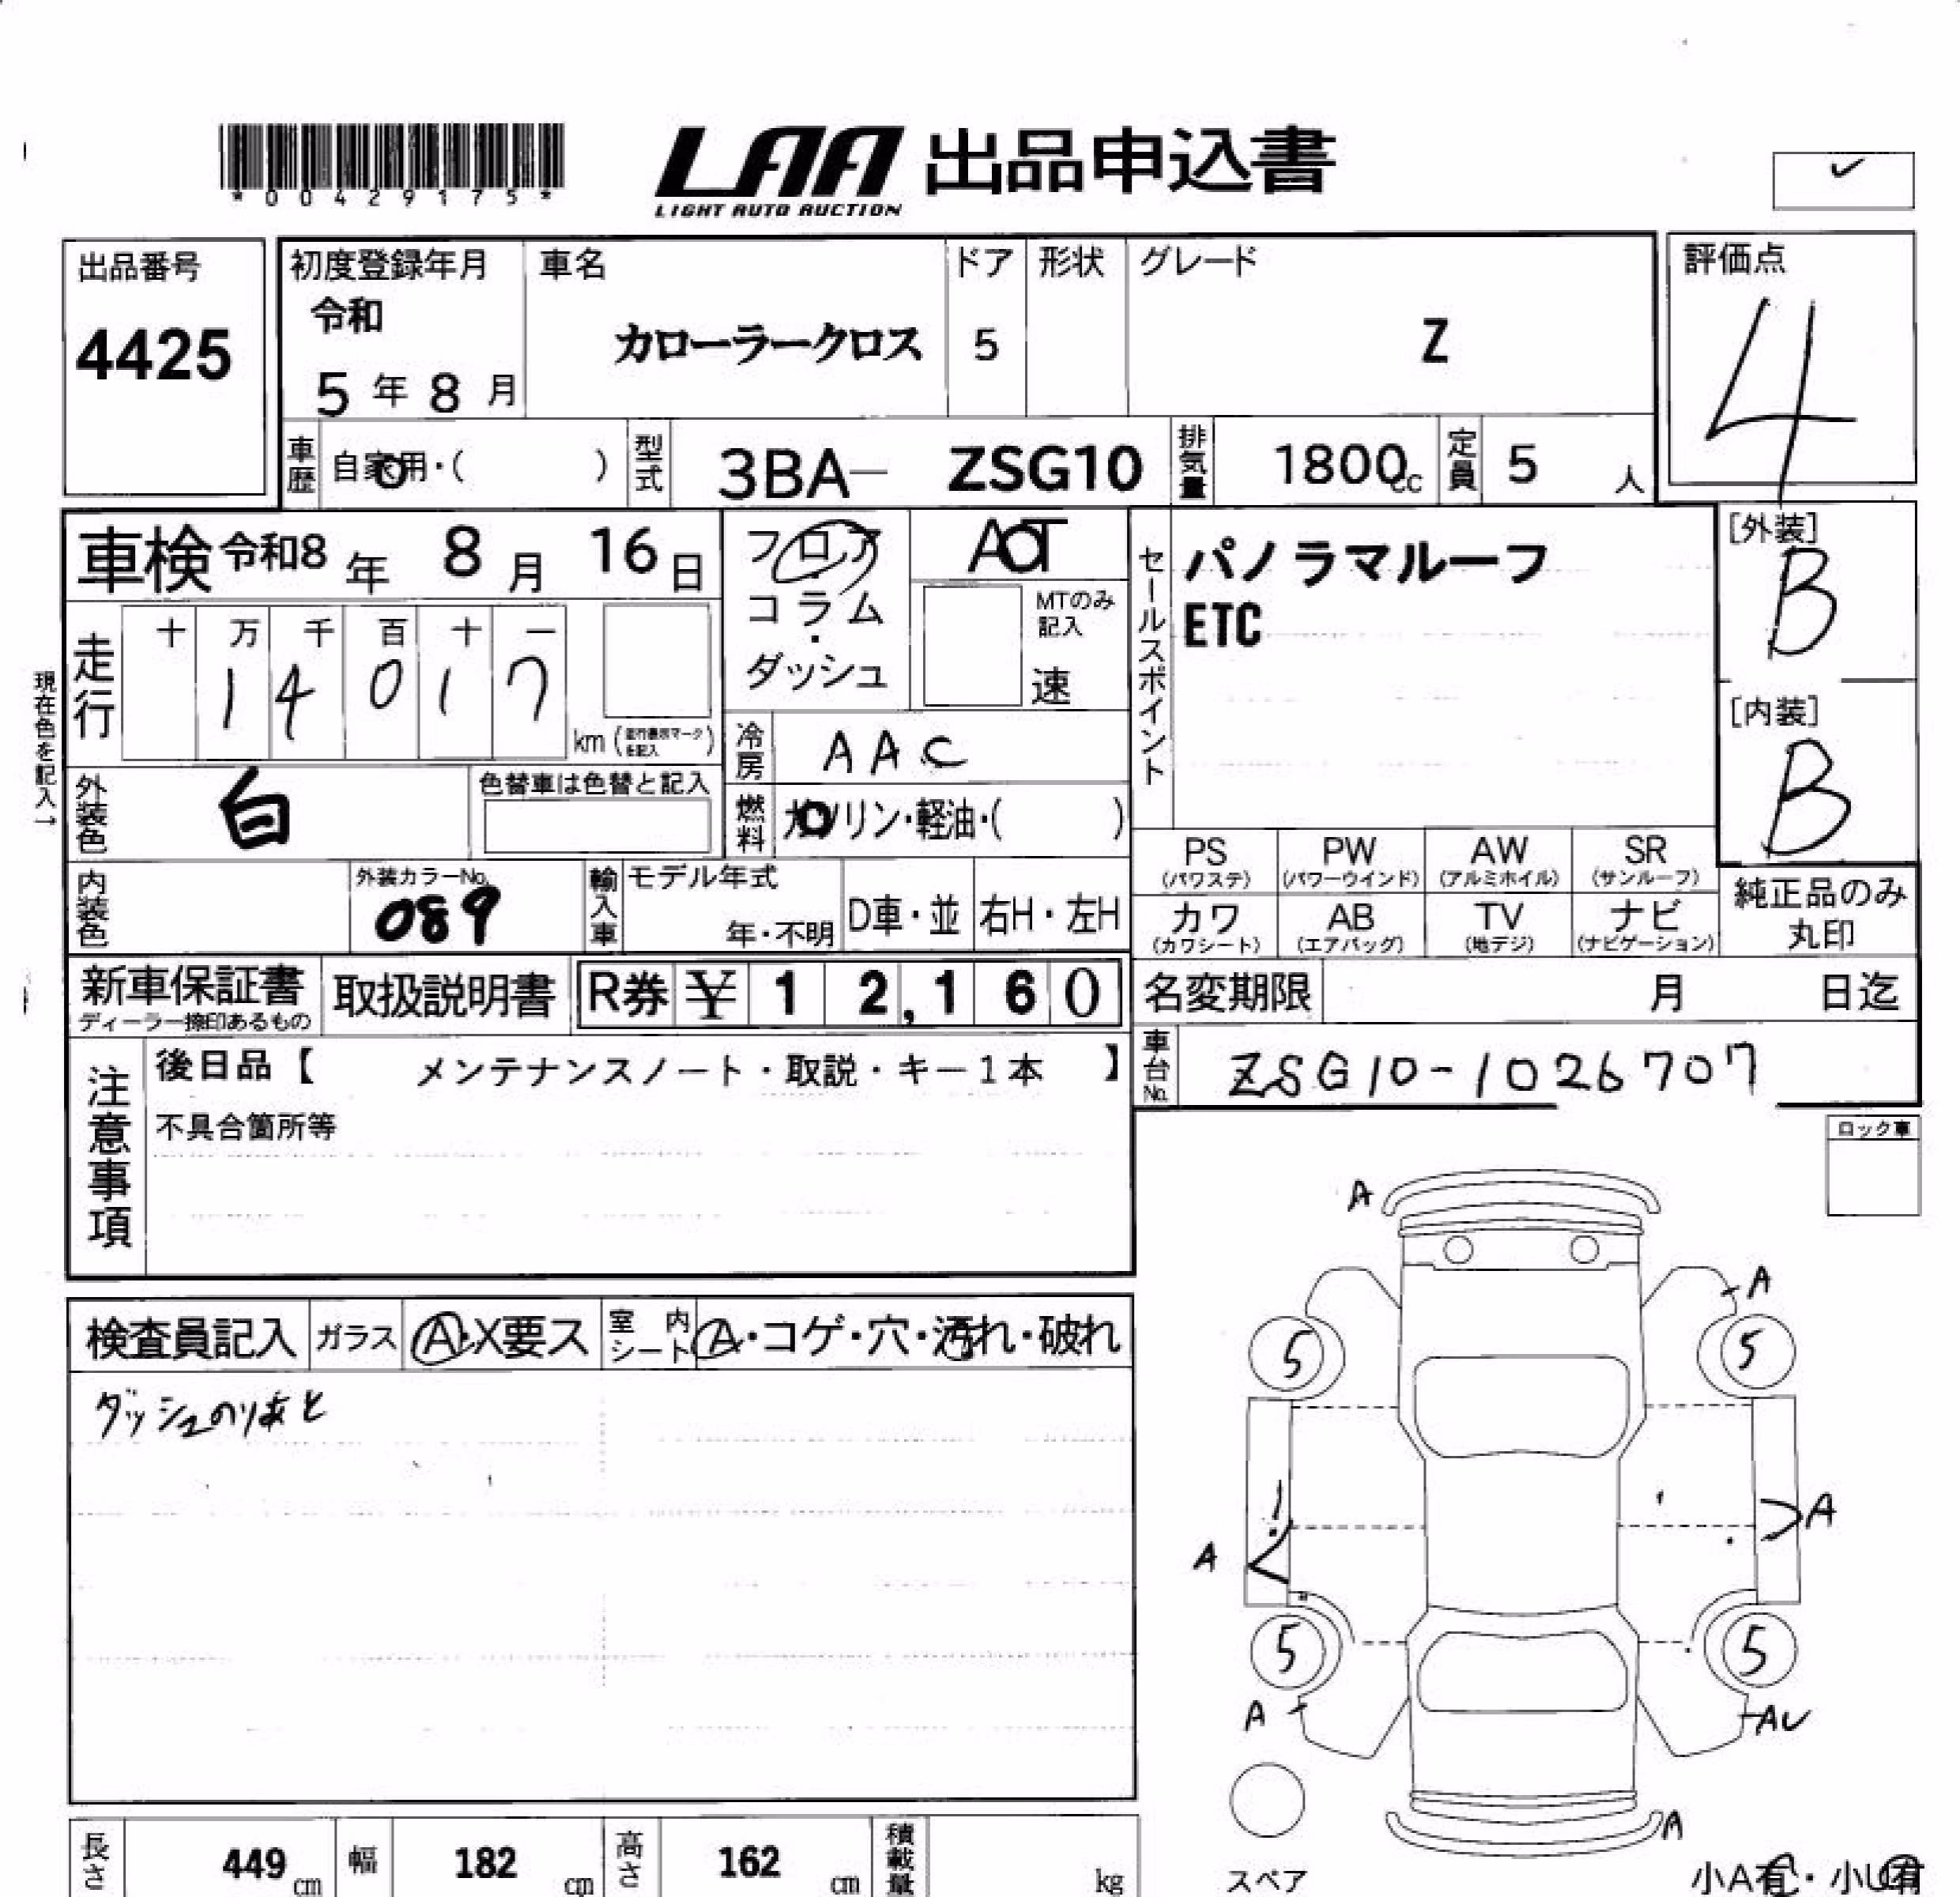 *00429175*
LAA 出品申込書
LIGHT AUTO AUCTION
出品番号
4425
初度登録年月
令和
5年8月
車名
カローラークロス
ドア
5
形状
グレード
Z
評価点
4
車歴
自家用・( )
型式
3BA- ZSG10
排気量
1800cc
定員
5人
車検 令和8年 8月 16日
フロア・コラム・ダッシュ
AT
MTのみ記入
速
セールスポイント
パノラマルーフ
ETC
[外装]
B
[内装]
B
現在色を記入→
走行
十 万 千 百 十 一
1 4 0 1 7
km (走行表示マークを記入)
冷房
AAC
外装色
白
色替車は色替と記入
燃料
ガソリン・軽油・( )
PS (パワステ)
PW (パワーウインド)
AW (アルミホイル)
SR (サンルーフ)
カワ (カワシート)
AB (エアバッグ)
TV (地デジ)
ナビ (ナビゲーション)
純正品のみ
丸印
内装色
外装カラーNo.
089
輸入車
モデル年式
年・不明
D車・並
右H・左H
新車保証書
ディーラー捺印あるもの
取扱説明書
R券 ¥ 1 2,1 6 0
名変期限
月 日迄
注意事項
後日品【 メンテナンスノート・取説・キー1本 】
不具合箇所等
車台No.
ZSG10-1026707
ロック車
検査員記入
ガラス
A・X要ス
室内シート
A・コゲ・穴・汚れ・破れ
ダッシュのりあと
A
A
5
5
A
A
5
5
A
AU
A
スペア
小A有・小U有
長さ
449cm
幅
182cm
高さ
162cm
積載量
kg